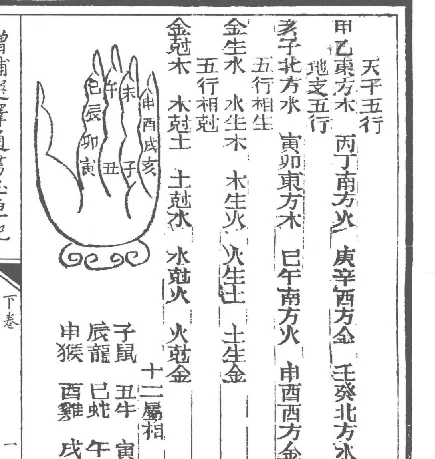 天干五行
甲乙東方木 丙丁南方火 庚辛西方金 壬癸北方水
地支五行
亥子北方水 寅卯東方木 巳午南方火 申酉西方金
五行相生
金生水 水生木 木生火 火生土 土生金
五行相尅
金尅木 木尅土 土尅水 水尅火 火尅金
申酉戌亥
未子
午丑
巳辰卯寅
十二屬相
子鼠 丑牛 寅
辰龍 巳蛇 午
申猴 酉雞 戌
增補選擇通書玉匣記
下卷
一